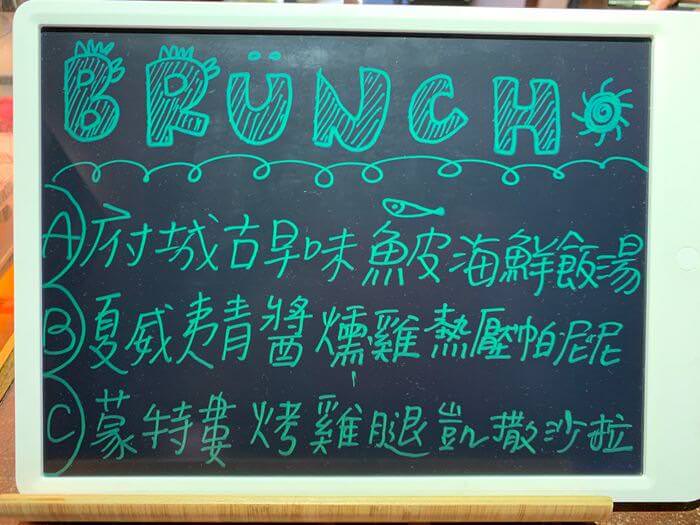 BRÜNCH
A 府城古早味魚皮海鮮飯湯
B 夏威夷青醬燻雞熱壓帕尼尼
C 蒙特婁烤雞腿凱撒沙拉